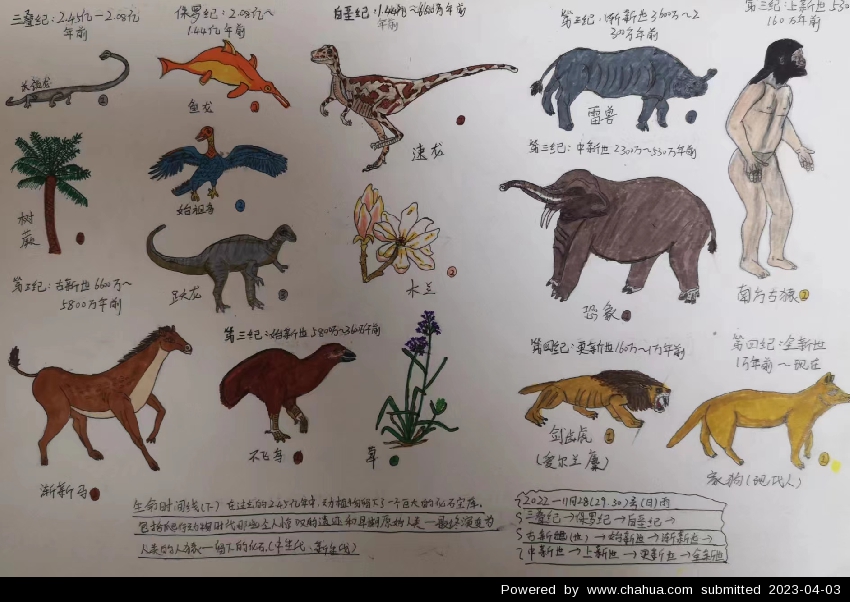 三叠纪:2.45亿-2.08亿
年前
侏罗纪:2.08亿~
1.44亿年前
白垩纪:1.44亿~6600万年前
第三纪:渐新世3600万~2
300万年前
第三纪:上新世530
160万年前
长颈龙
鱼龙
速龙
雷兽
第三纪:中新世2300万~530万年前
始祖鸟
树
蕨
跃龙
木兰
恐象
南方古猿
第三纪:古新世6600万~
5800万年前
第三纪:始新世5800万~3600万年前
第四纪:更新世160万~1万年前
第四纪:全新世
1万年前~现在
渐新马
不飞鸟
草
剑齿虎
(爱尔兰麋)
家狗(现代人)
生命时间线(下)
在过去的2.45亿年中,动植物留下了一个巨大的化石宝库。
包括爬行动物时代那些令人惊叹的遗迹和早期原始人类——最终演变为
人类的人猿——留下的化石。(中生代、新生代)
2022-11月28(29.30)
(日)雨
三叠纪→侏罗纪→白垩纪→
古新世(世)→始新世→渐新世→
中新世→上新世→更新世→全新世
Powered by www.chahua.com submitted 2023-04-03